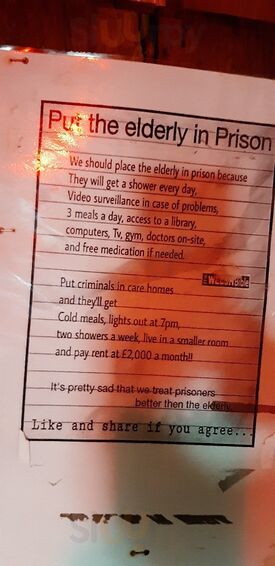 Put the elderly in Prison
We should place the elderly in prison because
They will get a shower every day,
Video surveillance in case of problems,
3 meals a day, access to a library,
computers, Tv, gym, doctors on-site,
and free medication if needed.
Put criminals in care homes
and they'll get
Cold meals, lights out at 7pm,
two showers a week, live in a smaller room
and pay rent at £2,000 a month!!
It's pretty sad that we treat prisoners
better then the elderly.
Like and share if you agree...